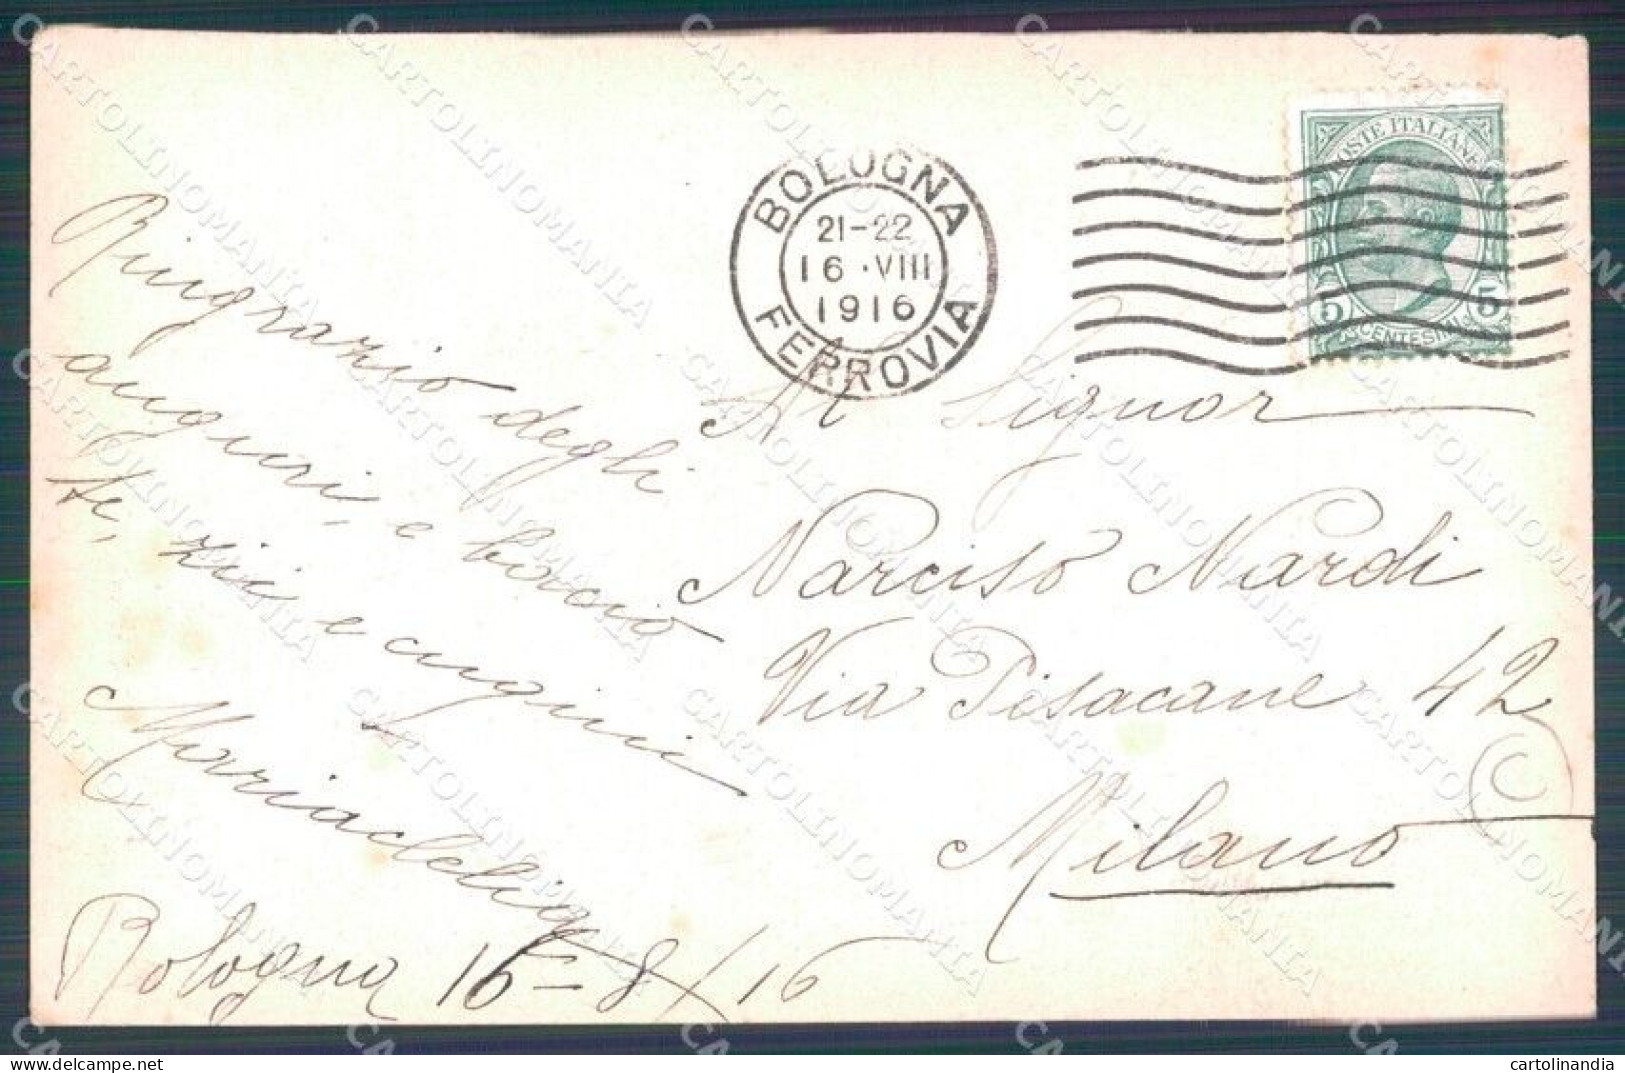 BOLOGNA
21-22
16 · VIII
1916
FERROVIA
POSTE ITALIANE
5 5
CENTESIMI
Ringrazio degli
auguri, e bacio
te, zii e cugini
Mariadelia
Bologna 16-8/16
Al Signor
Narciso Nardi
Via Pisacane 42
Milano
CARTOLINOMANIA
cartolinandia